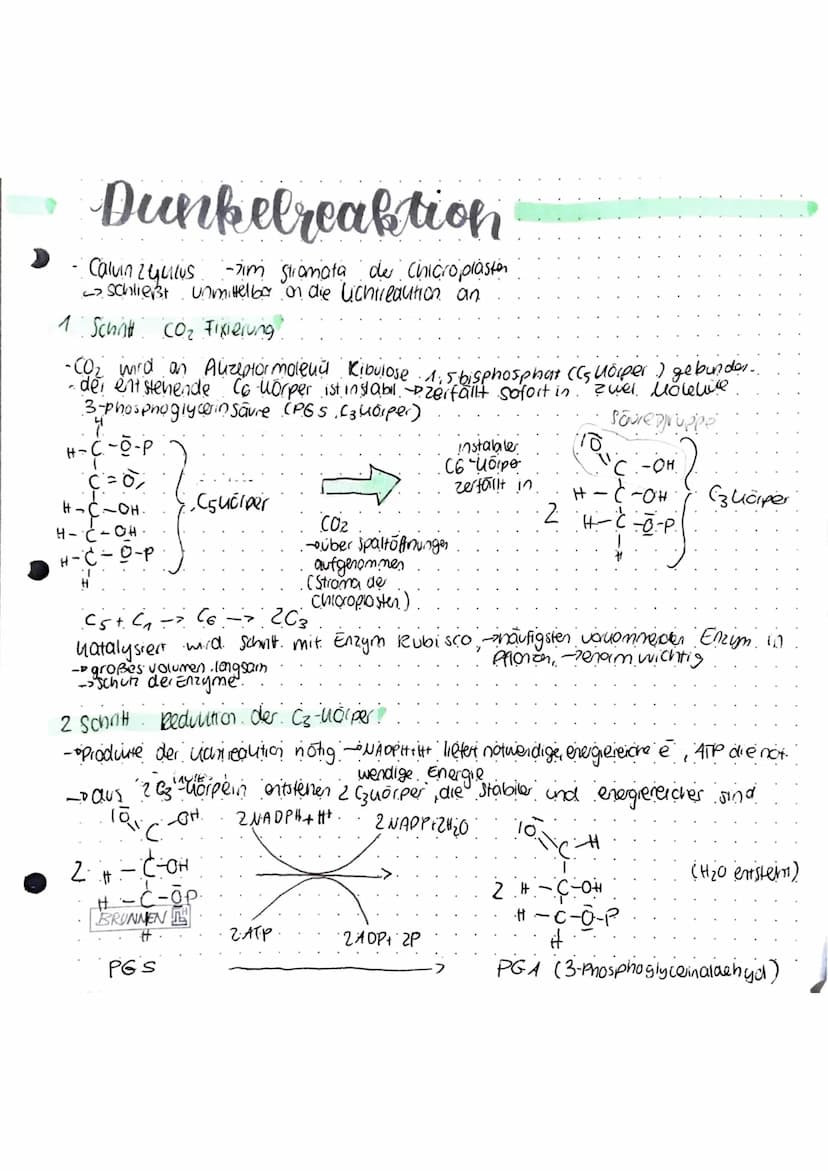 Dunkelreaktion
- Calvinzyklus → im Stromata der Chloroplasten
↳ schließt unmittelbar an die Lichtreaktion an
1 Schritt CO2 Fixierung
- CO2 wird an Akzeptormolekül Ribulose 1,5 bisphosphat (C5 Körper) gebunden
- der entstehende C6-Körper ist instabil → zerfällt sofort in zwei Moleküle
3-phosphoglycerinsäure (PGS, C3 Körper)
Säuregruppe
H
H-C-O-P
C=O
H-C-OH
H-C-OH
H-C-O-P
H
C5 Körper
CO2
→ über Spaltöffnungen
aufgenommen
(Stroma der
Chloroplasten)
instabiler
C6-Körper
zerfällt in
2
IO
C-OH
H-C-OH
H-C-O-P
H
C3 Körper
C5 + C1 → C6 → 2C3
Katalysiert wird Schritt mit Enzym Rubisco, → häufigsten vorkommenden Enzym in
Pflanzen, → enorm wichtig
→ großes Volumen, langsam
→ Schutz der Enzyme
2 Schritt Reduktion der C3-Körper
→ Produkte der Lichtreaktion nötig → NADPH+H+ liefert notwendige, energiereiche e-, ATP die not-
wendige Energie
→ aus 2 C3-Körpern entstehen 2 C3 Körper, die stabiler und energiereicher sind
IO
C-OH
2 H-C-OH
H-C-OP
H
BRUNNEN
2 NADPH+H+
2 NADP+2H2O
2 ATP
2 ADP+ 2P
IO
C-H
2 H-C-OH
H-C-O-P
H
(H2O entsteht)
PGS → PGA (3-Phosphoglycerinaldehyd)